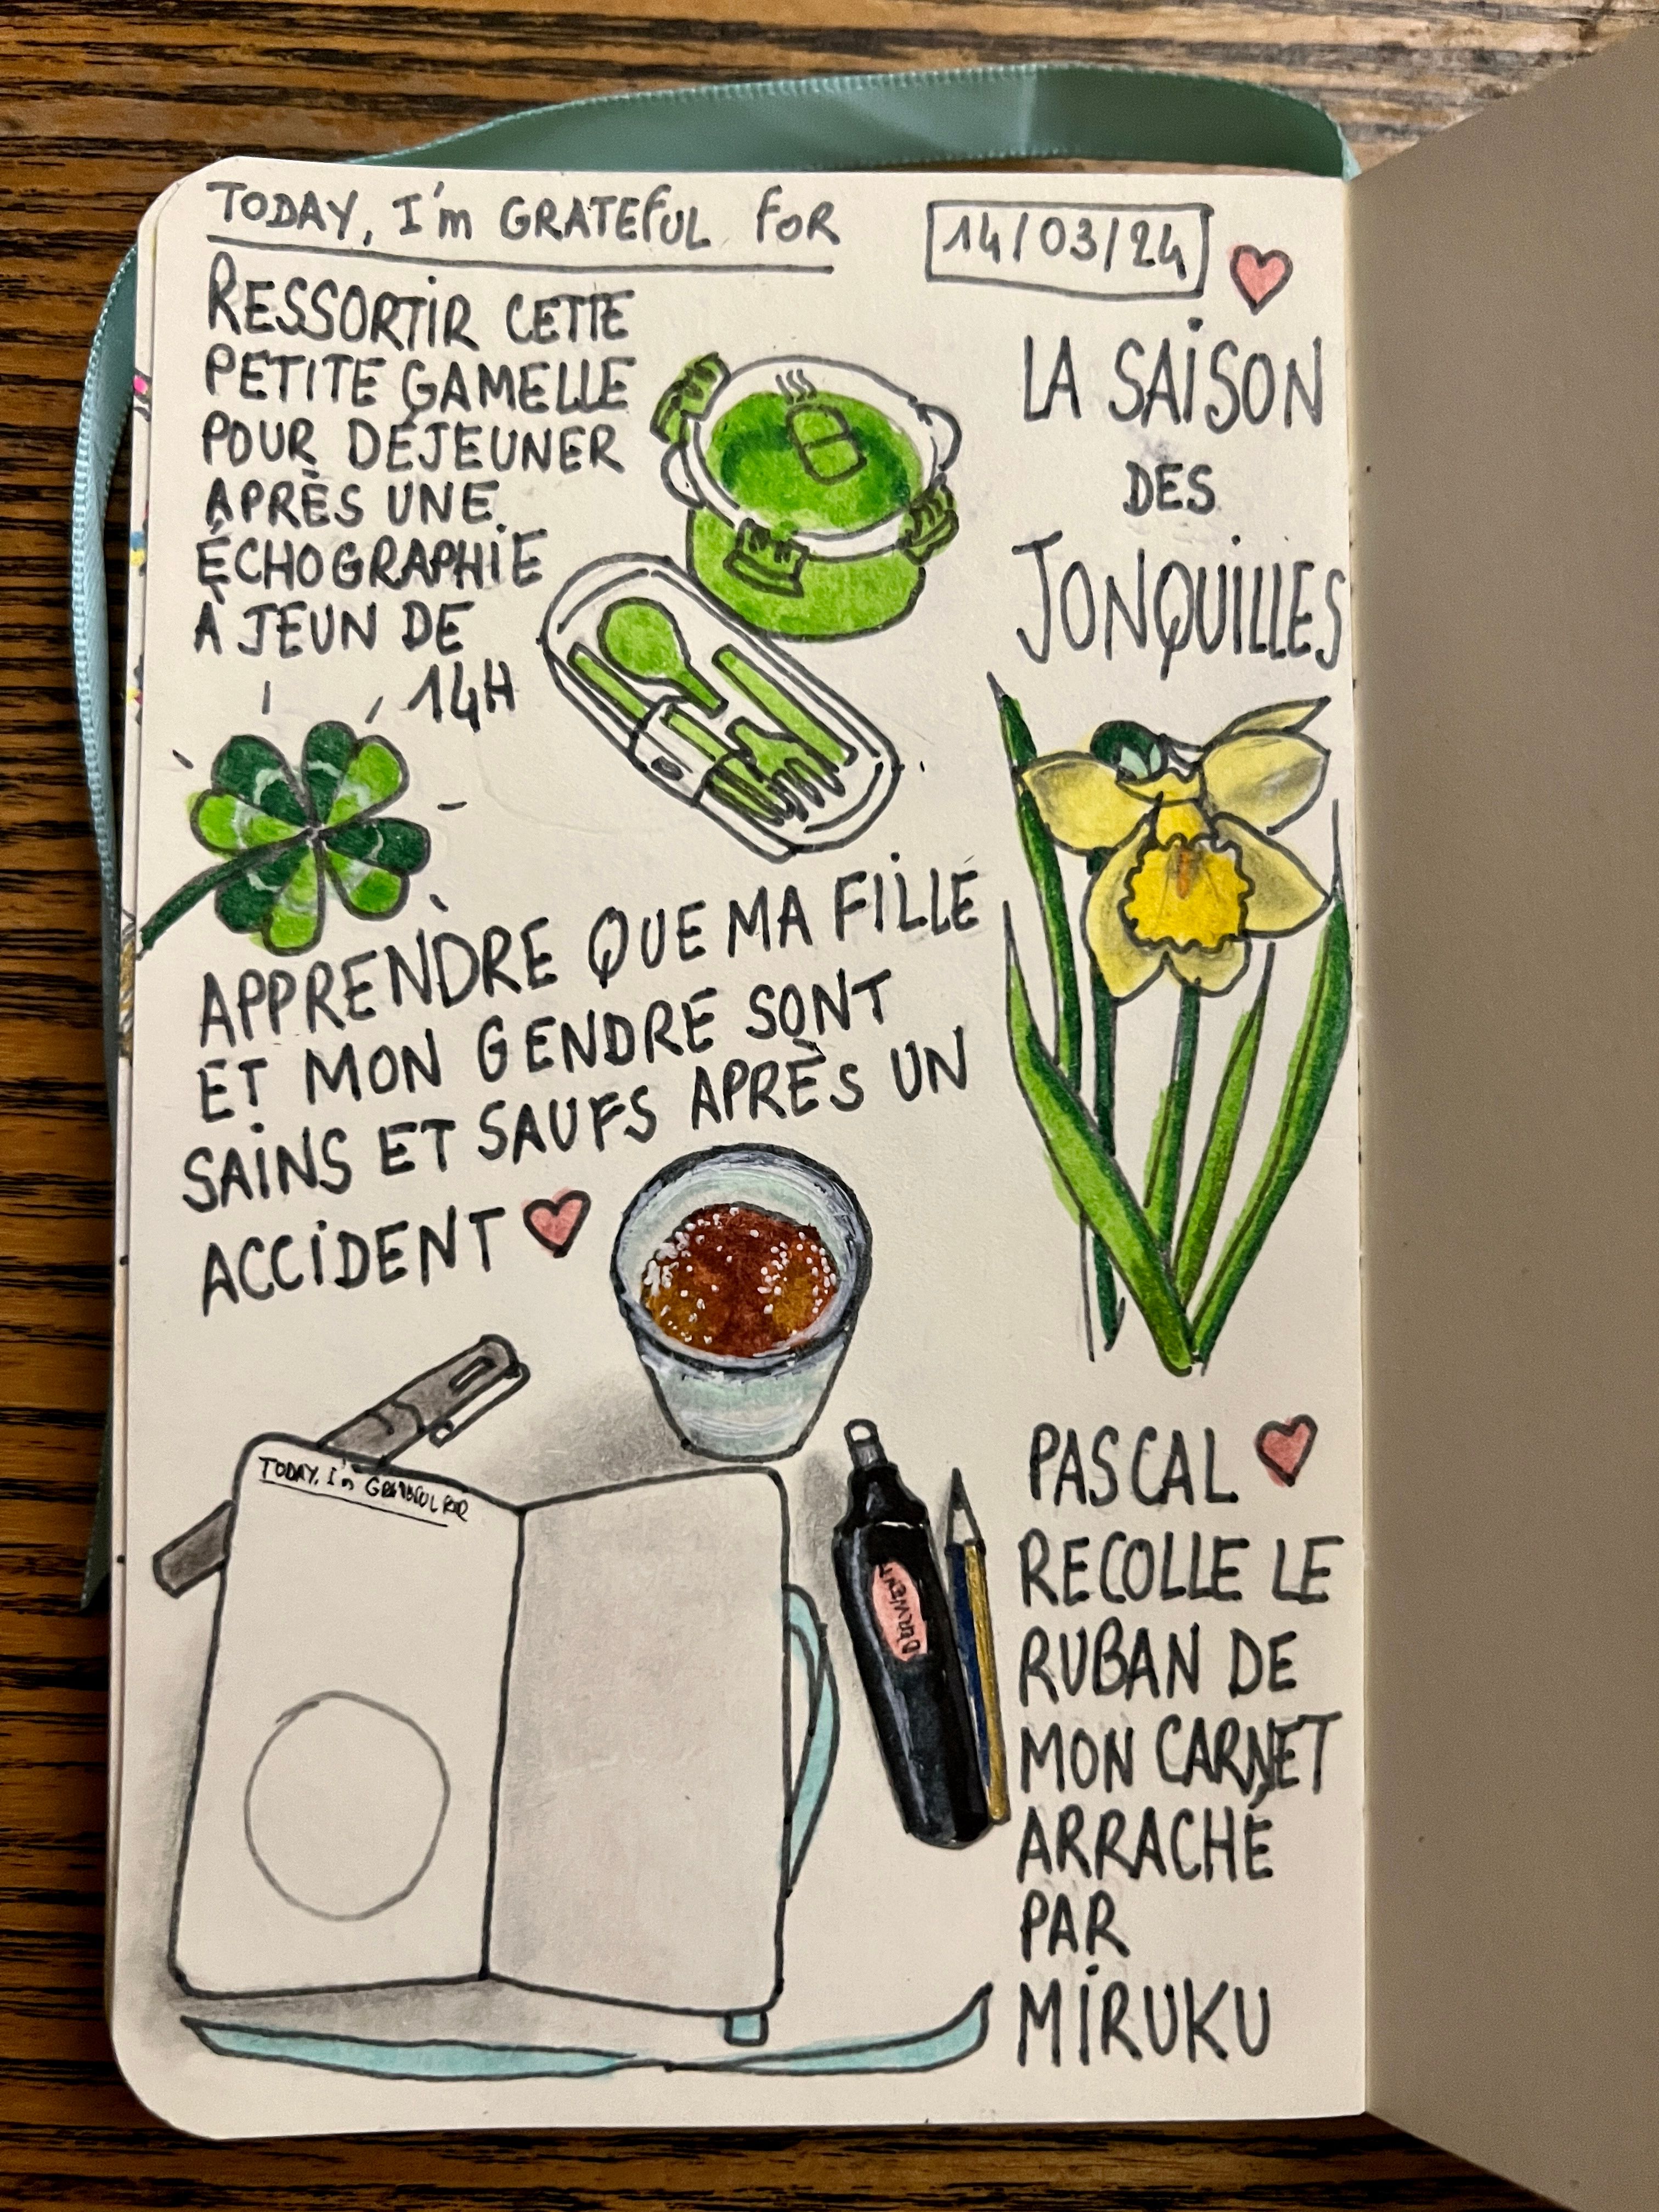 TODAY, I'm GRATEFUL FOR
14/03/24
RESSORTIR CETTE
PETITE GAMELLE
POUR DÉJEUNER
APRÈS UNE
ÉCHOGRAPHIE
À JEUN DE
14H
LA SAISON
DES
JONQUILLES
APPRENDRE QUE MA FILLE
ET MON GENDRE SONT
SAINS ET SAUFS APRÈS UN
ACCIDENT
TODAY, I'm GRATEFUL FOR
DERWENT
PASCAL
RECOLLE LE
RUBAN DE
MON CARNET
ARRACHÉ
PAR
MIRUKU